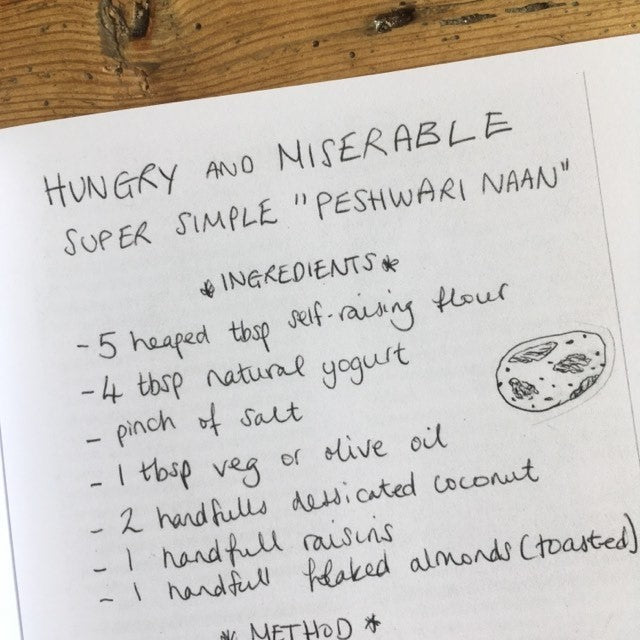 HUNGRY AND MISERABLE
SUPER SIMPLE "PESHWARI NAAN"
* INGREDIENTS *
- 5 heaped tbsp self-raising flour
- 4 tbsp natural yogurt
- pinch of salt
- 1 tbsp veg or olive oil
- 2 handfulls dessicated coconut
- 1 handfull raisins
- 1 handfull flaked almonds (toasted)
* METHOD *